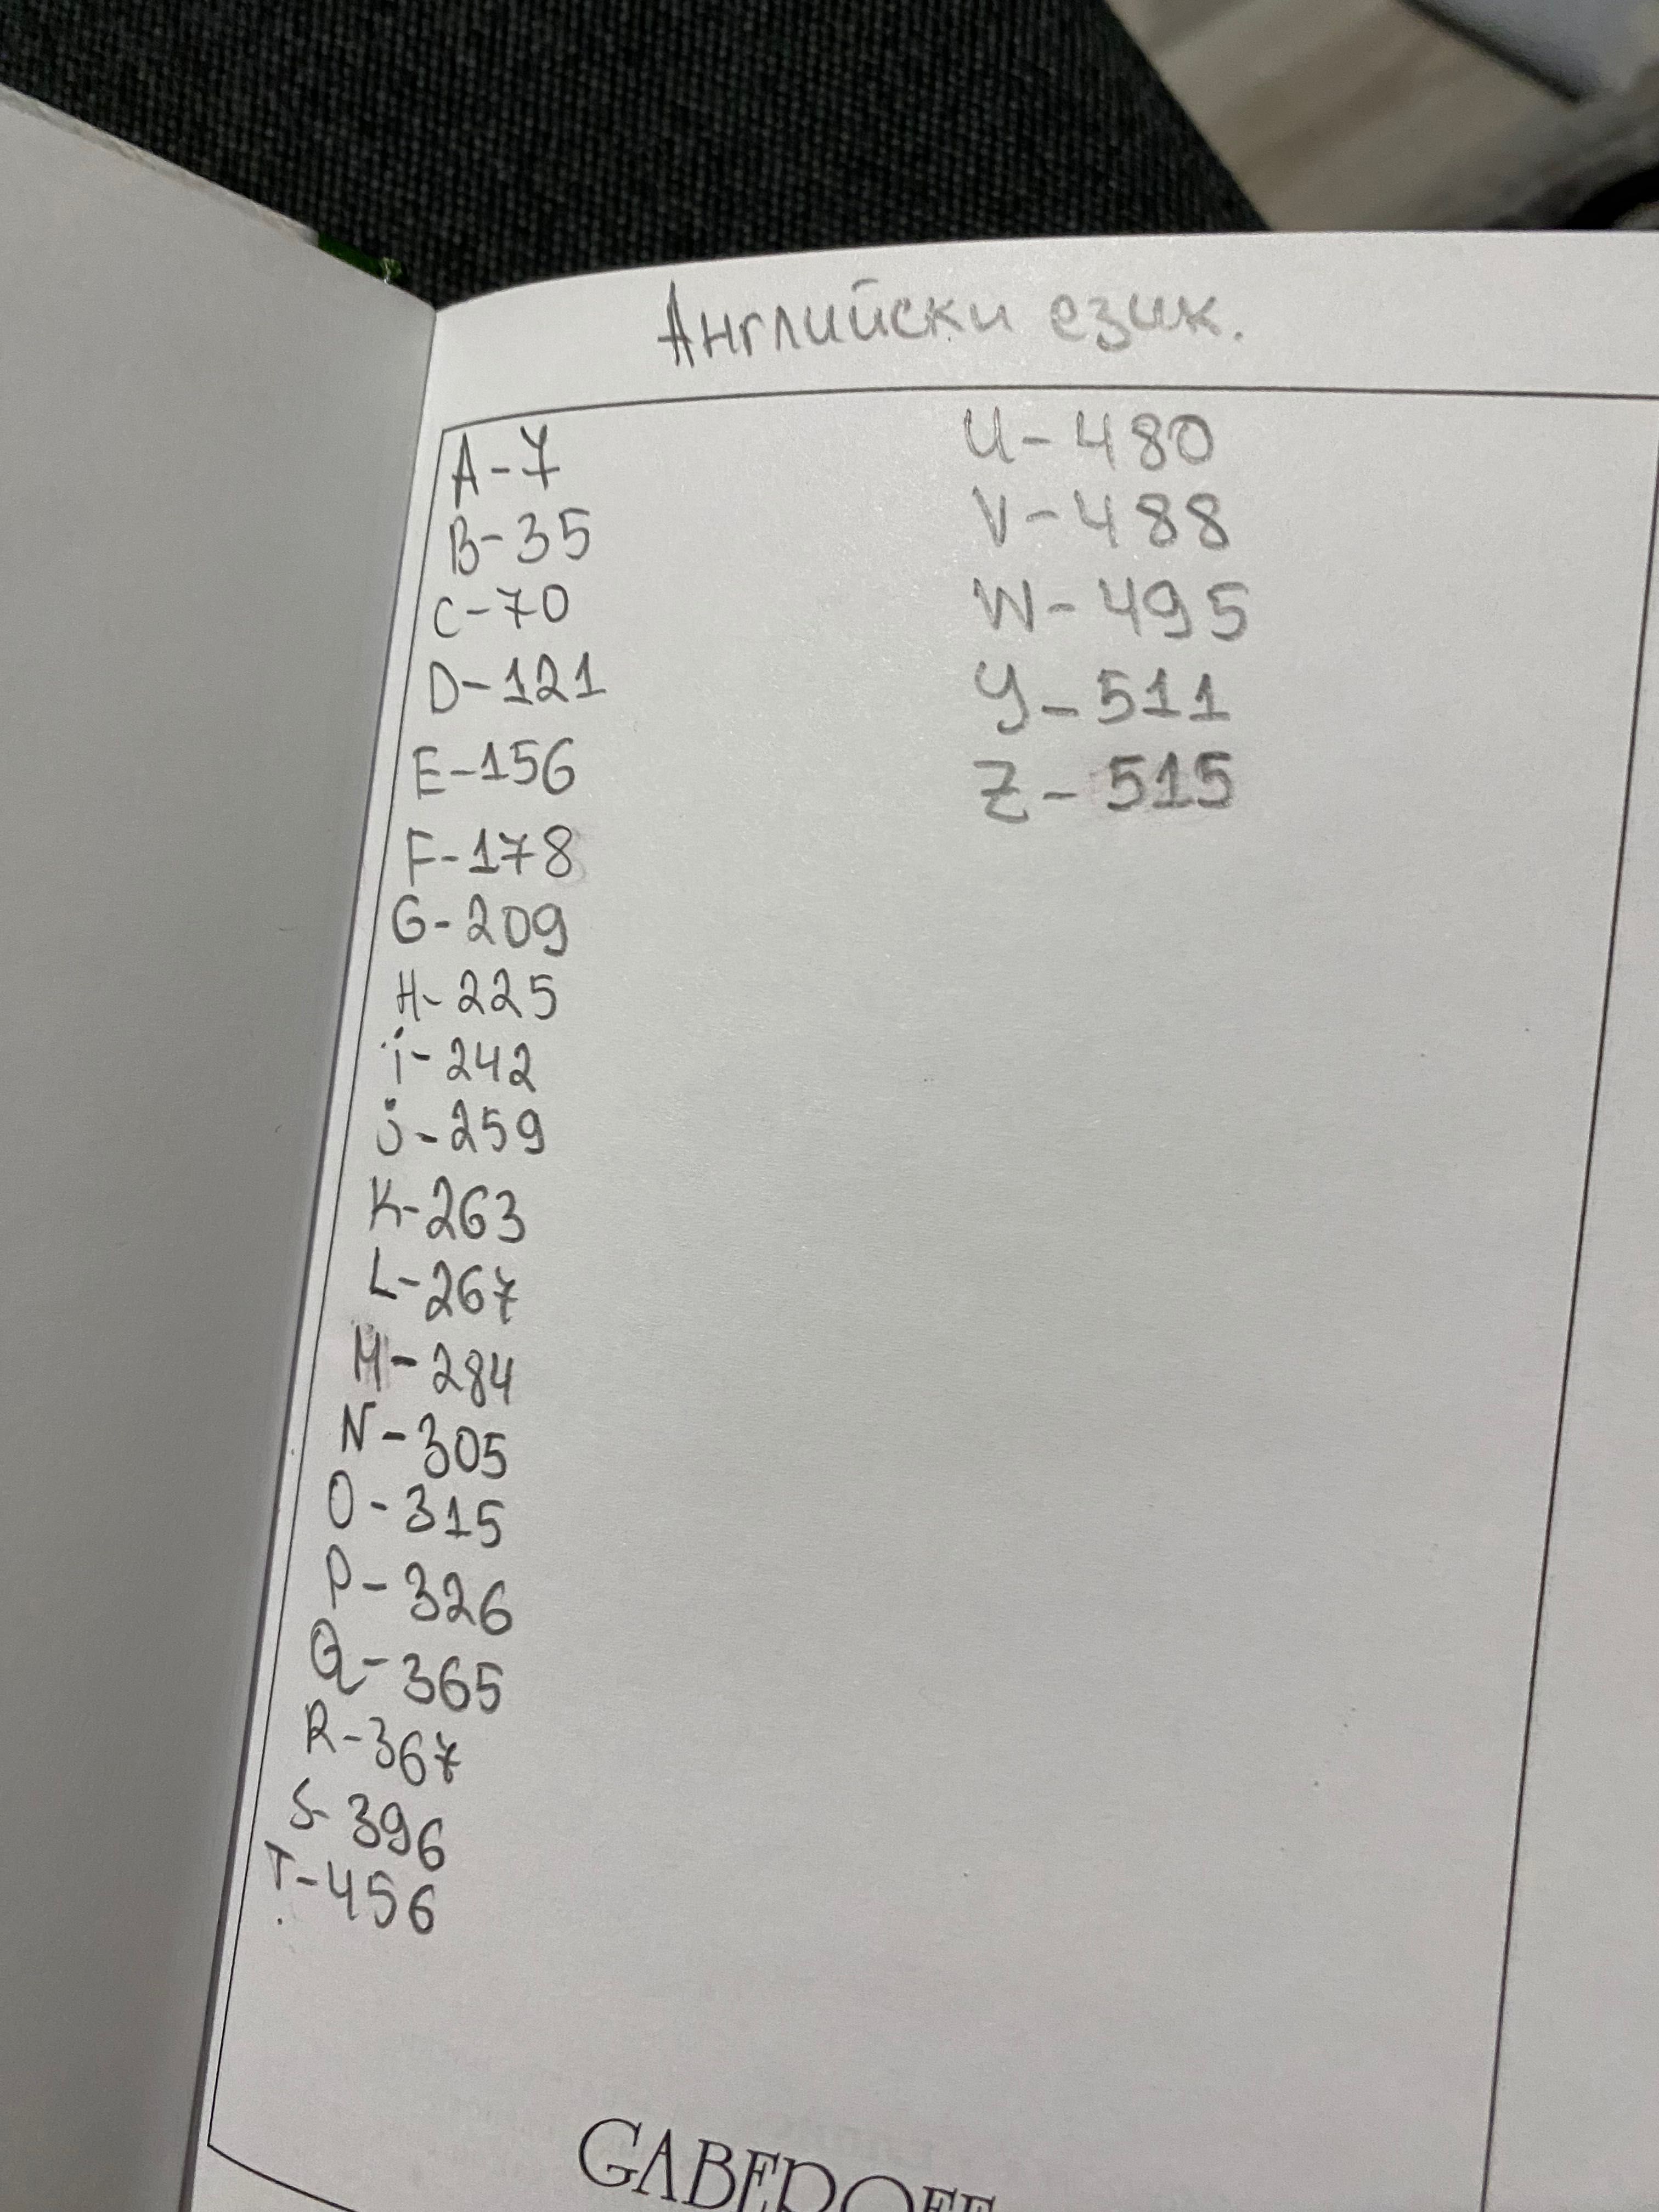 Английски език.
A-7
B-35
C-70
D-121
E-156
F-178
G-209
H-225
i-242
j-259
K-263
L-267
M-284
N-305
O-315
P-326
Q-365
R-367
S-396
T-456
U-480
V-488
W-495
Y-511
Z-515
GABEROFF